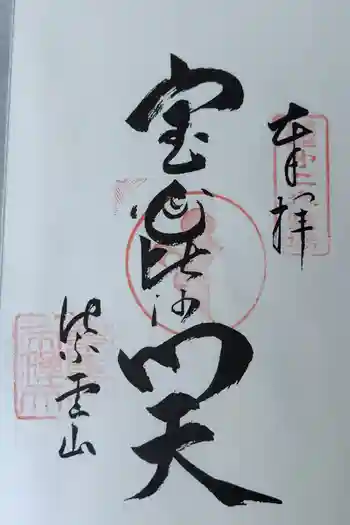 奉拝
宝毘沙門天
紫雲山